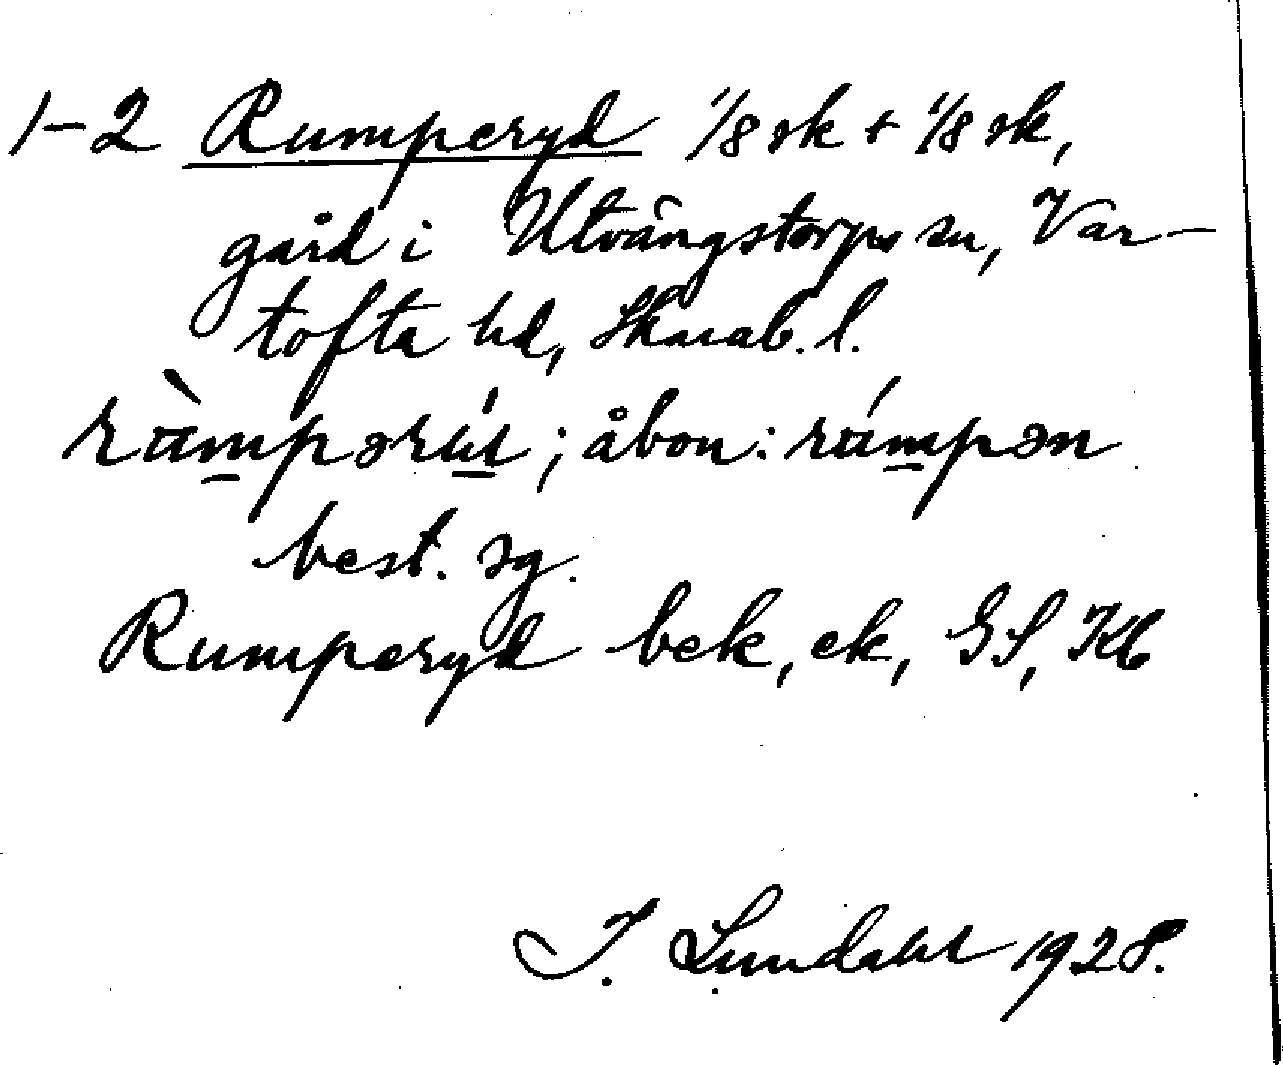 1-2 Rumperyd 1/8 sk + 1/8 sk,
gård i Utvängstorps sn, Var-
tofta hd, Skarab. l.
åbon:
best. sg.
Rumperyd bek, ek, GS, Kb
I. Lundahl 1928.